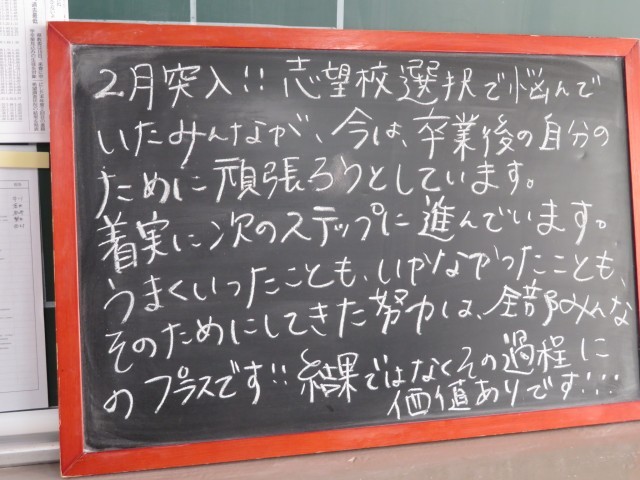 2月突入!! 志望校選択で悩んで
いたみんなが、今は、卒業後の自分の
ために頑張ろうとしています。
着実に次のステップに進んでいます。
うまくいったことも、いかなかったことも、
そのためにしてきた努力は、全部みんな
のプラスです!! 結果ではなくその過程に
価値ありです!!!